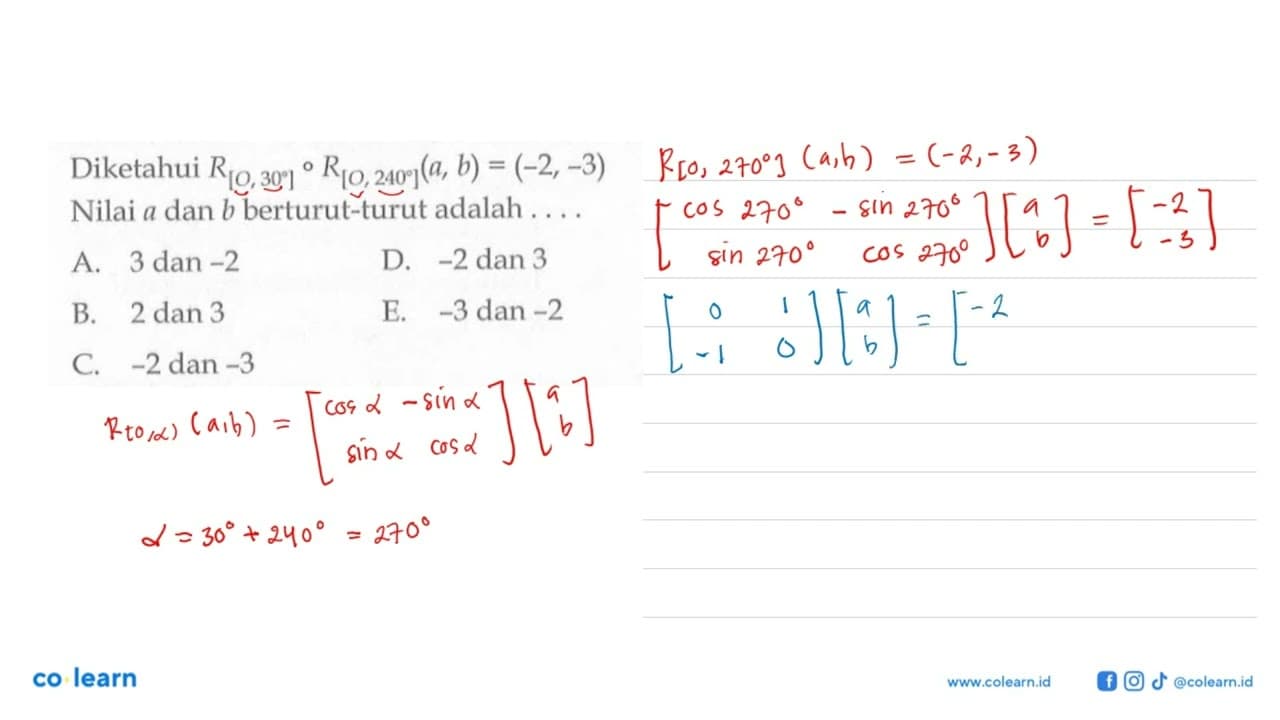 Diketahui R[O, 30°] ° R[O, 240°](a, b) = (–2, –3)
Nilai a dan b berturut-turut adalah . . . .
A. 3 dan –2
B. 2 dan 3
C. –2 dan –3
D. –2 dan 3
E. –3 dan –2
R[0,α) (a,b) = [cos α -sin α
sin α cos α] [a
b]
α = 30° + 240° = 270°
R[0, 270°] (a,b) = (-2,-3)
[cos 270° - sin 270°
sin 270° cos 270°] [a
b] = [-2
-3]
[0 1
-1 0] [a
b] = [-2
co·learn
www.colearn.id
@colearn.id